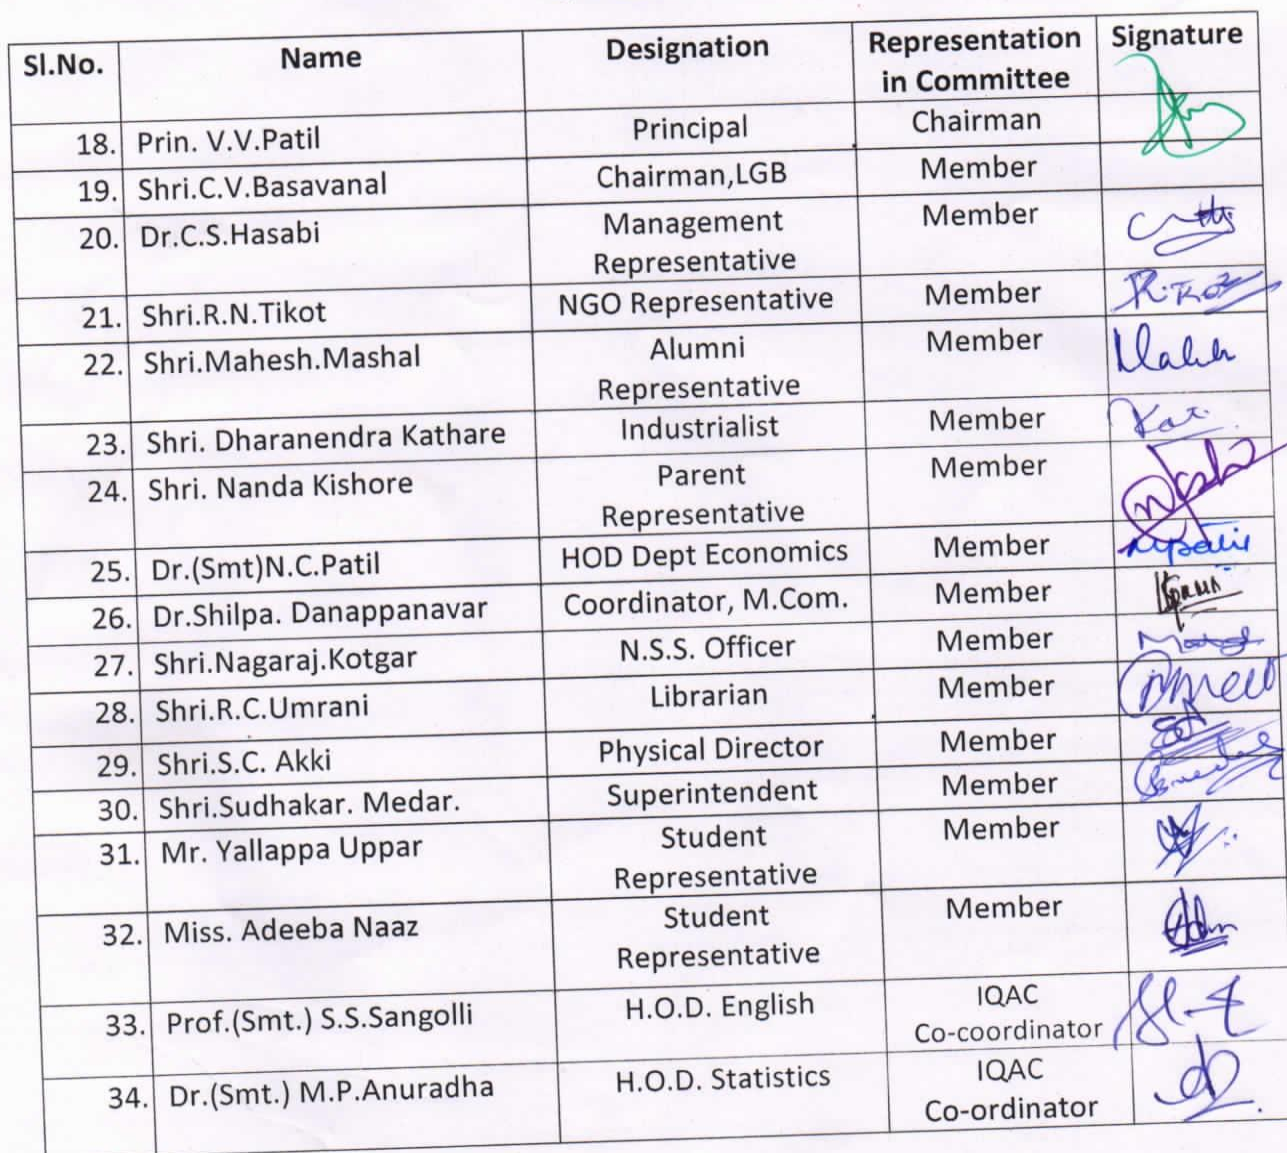 Sl.No. Name Designation Representation Signature
in Committee
18. Prin. V.V.Patil Principal Chairman
19. Shri.C.V.Basavanal Chairman,LGB Member
20. Dr.C.S.Hasabi Management Member
Representative
21. Shri.R.N.Tikot NGO Representative Member
22. Shri.Mahesh.Mashal Alumni Member
Representative
23. Shri. Dharanendra Kathare Industrialist Member
24. Shri. Nanda Kishore Parent Member
Representative
25. Dr.(Smt)N.C.Patil HOD Dept Economics Member
26. Dr.Shilpa. Danappanavar Coordinator, M.Com. Member
27. Shri.Nagaraj.Kotgar N.S.S. Officer Member
28. Shri.R.C.Umrani Librarian Member
29. Shri.S.C. Akki Physical Director Member
30. Shri.Sudhakar. Medar. Superintendent Member
31. Mr. Yallappa Uppar Student Member
Representative
32. Miss. Adeeba Naaz Student Member
Representative
33. Prof.(Smt.) S.S.Sangolli H.O.D. English IQAC
Co-coordinator
34. Dr.(Smt.) M.P.Anuradha H.O.D. Statistics IQAC
Co-ordinator